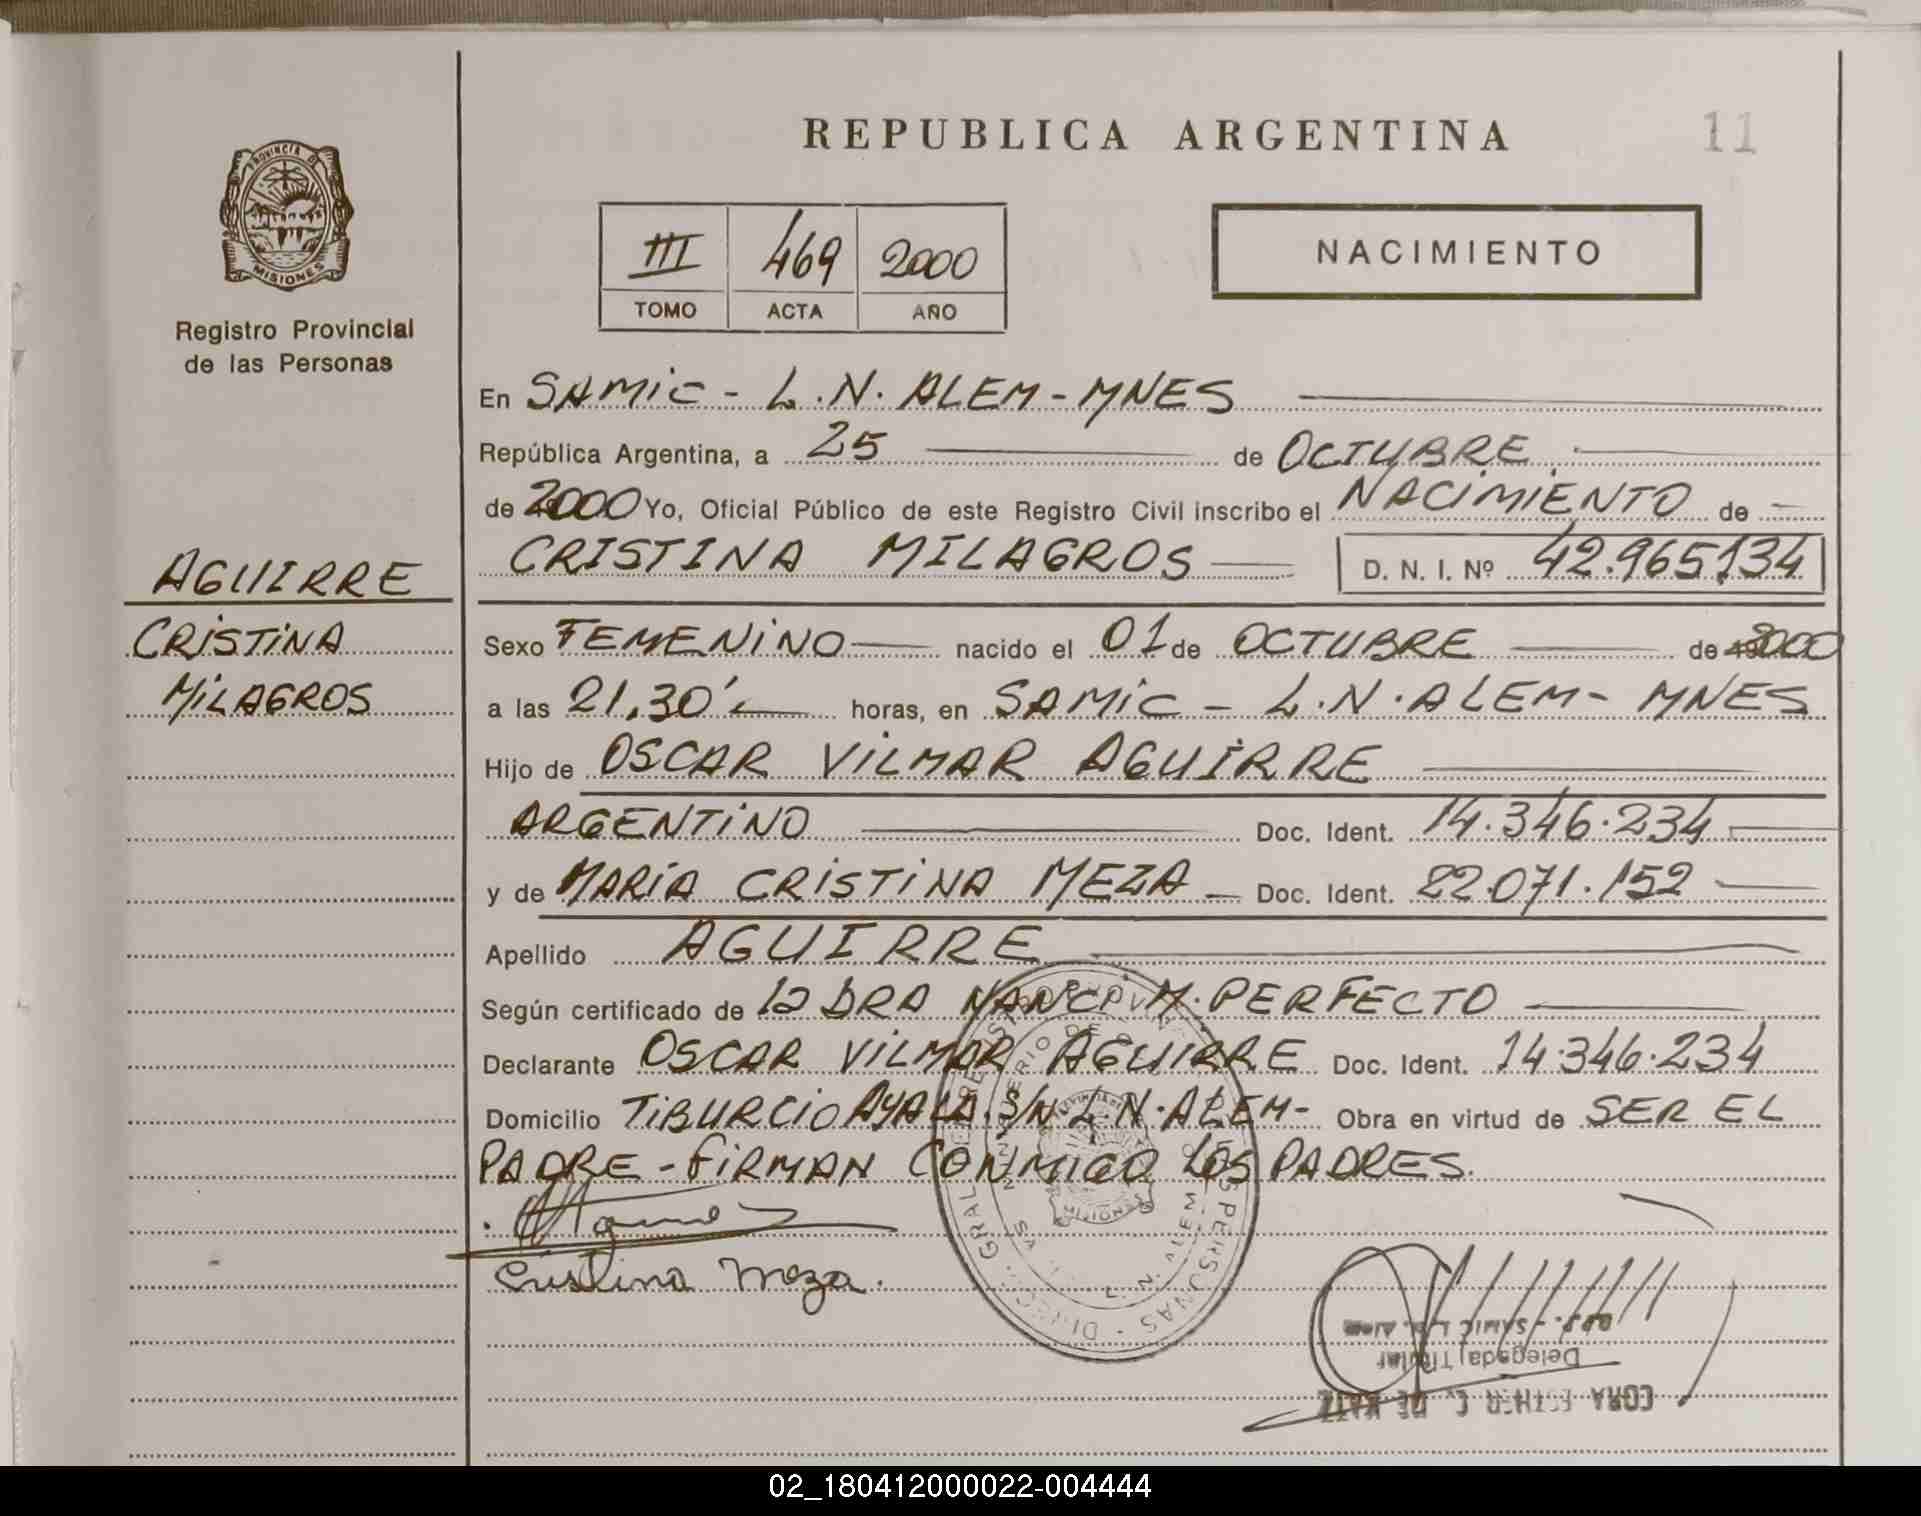 REPUBLICA ARGENTINA
11
PROVINCIA D
MISIONES
Registro Provincial
de las Personas
III 469 2000
TOMO ACTA AÑO
NACIMIENTO
En SAMIC - L.N. ALEM - MNES
República Argentina, a 25 de OCTUBRE
de 2000 Yo, Oficial Público de este Registro Civil inscribo el NACIMIENTO de
CRISTINA MILAGROS D. N. I. Nº 42.965134
AGUIRRE
CRISTINA
MILAGROS
Sexo FEMENINO nacido el 01 de OCTUBRE de 2000
a las 21,30' horas, en SAMIC - L.N. ALEM - MNES
Hijo de OSCAR VILMAR AGUIRRE
ARGENTINO Doc. Ident. 14.346.234
y de MARIA CRISTINA MEZA Doc. Ident. 22.071.152
Apellido AGUIRRE
Según certificado de la DRA NANCI M. PERFECTO
Declarante OSCAR VILMAR AGUIRRE Doc. Ident. 14.346.234
Domicilio TIBURCIO AYALA S/N L.N. ALEM - Obra en virtud de SER EL
PADRE - FIRMAN CONMIGO LOS PADRES.
Cristina Meza.
Delegada Titular
02_180412000022-004444